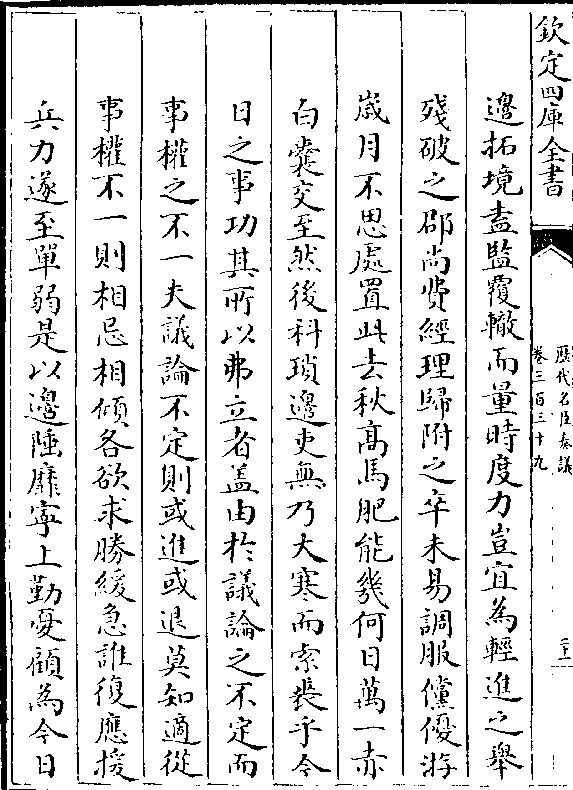 欽定四庫全書
歷代名臣奏議
卷三百三十九
二十一
邊拓境盍監覆轍而量時度力豈宜為輕進之舉
殘破之郡尚費經理歸附之卒未易調服儻優游
歲月不思處置此去秋高馬肥能幾何日萬一赤
白囊交至然後科瑣邊吏無乃大寒而索裘乎今
日之事功其所以弗立者蓋由於議論之不定而
事權之不一夫議論不定則或進或退莫知適從
事權不一則相忌相傾各欲求勝緩急誰復應援
兵力遂至單弱是以邊陲靡寧上勤憂顧為今日